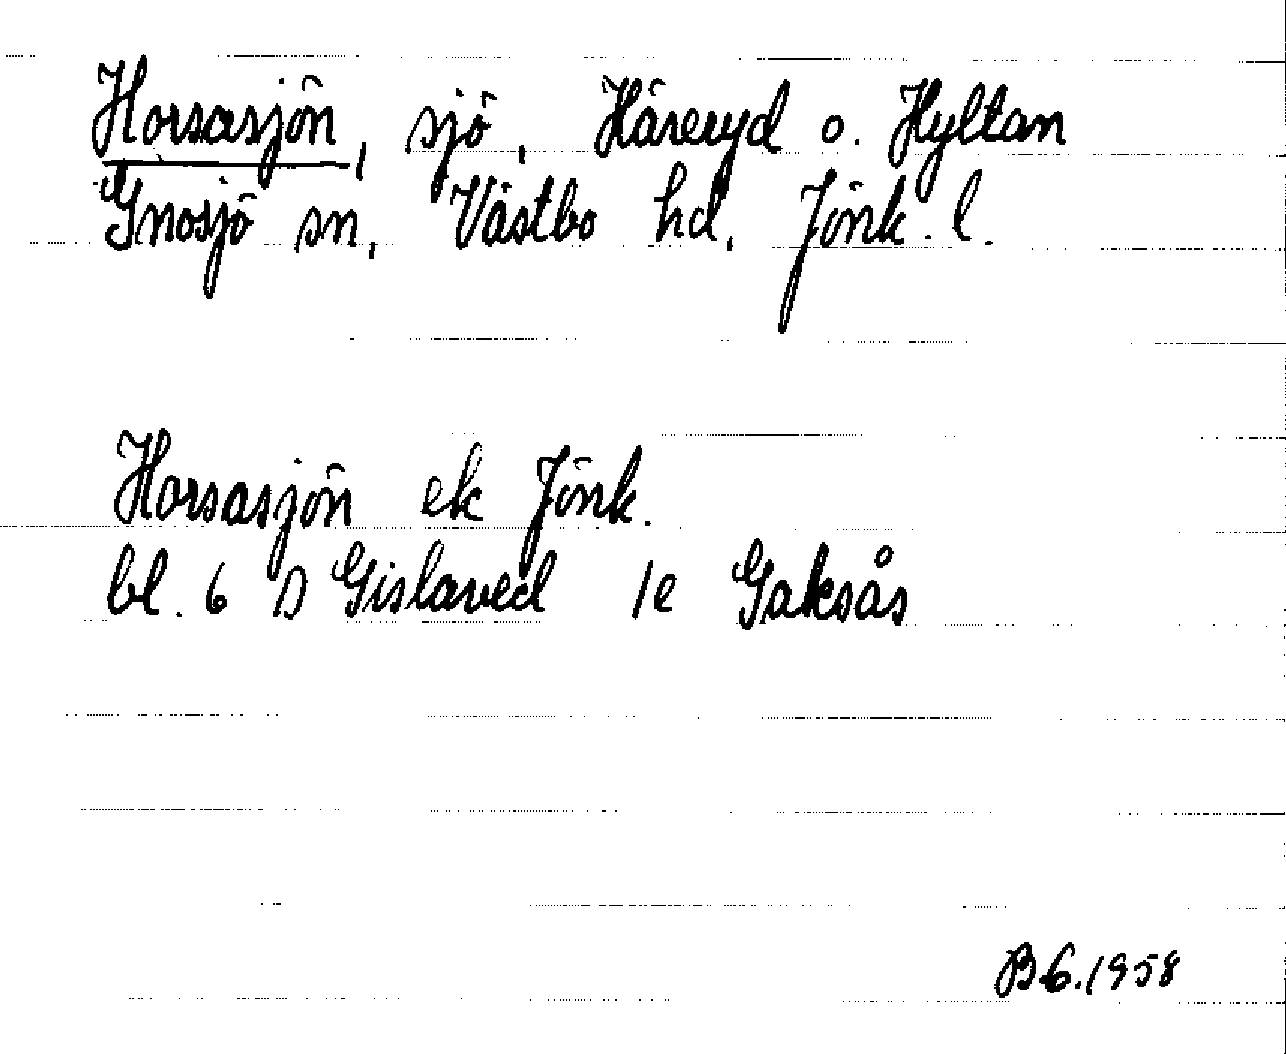 Horsasjön, sjö, Häreryd o. Hyltan
Gnosjö sn, Västbo hd, Jönk. l.
Horsasjön ek Jönk.
bl. 6 D Gislaved 1e Gaksås
BG.1958